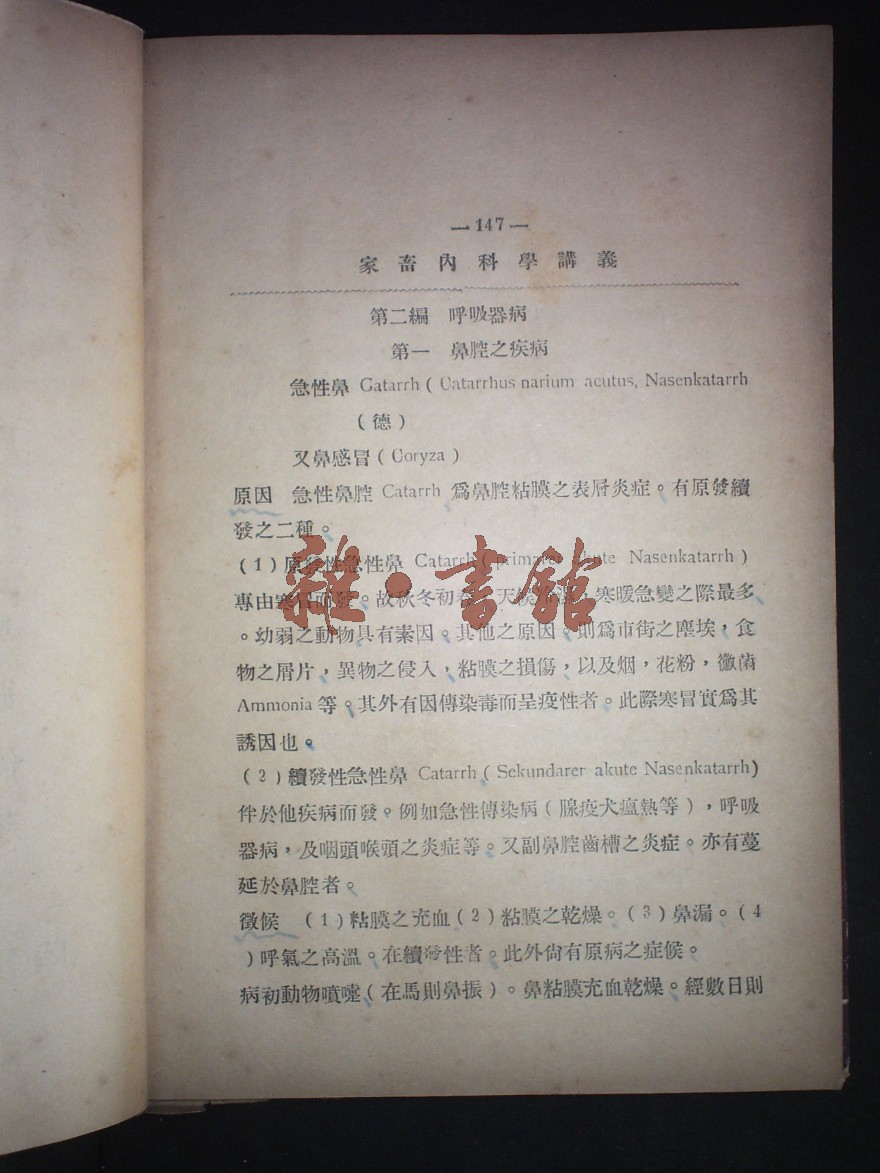 —147—
家畜內科學講義
第二編 呼吸器病
第一 鼻腔之疾病
急性鼻 Catarrh (Catarrhus narium acutus, Nasenkatarrh
(德)
又鼻感冒(Coryza)
原因 急性鼻腔 Catarrh 爲鼻腔粘膜之表層炎症。有原發續
發之二種。
(1)原發性急性鼻 Catarrh (primarer akute Nasenkatarrh)
專由寒冒而發。故秋冬初春,天候冷濕,寒暖急變之際最多
。幼弱之動物具有素因。其他之原因。則爲市街之塵埃,食
物之屑片,異物之侵入,粘膜之損傷,以及烟,花粉,黴菌
Ammonia 等。其外有因傳染毒而呈疫性者。此際寒冒實爲其
誘因也。
(2)續發性急性鼻 Catarrh (Sekundarer akute Nasenkatarrh)
伴於他疾病而發。例如急性傳染病(腺疫犬瘟熱等),呼吸
器病,及咽頭喉頭之炎症等。又副鼻腔齒槽之炎症。亦有蔓
延於鼻腔者。
徵候 (1)粘膜之充血(2)粘膜之乾燥。(3)鼻漏。(4
)呼氣之高溫。在續發性者。此外尙有原病之症候。
病初動物噴嚏(在馬則鼻振)。鼻粘膜充血乾燥。經數日則
雜·書館